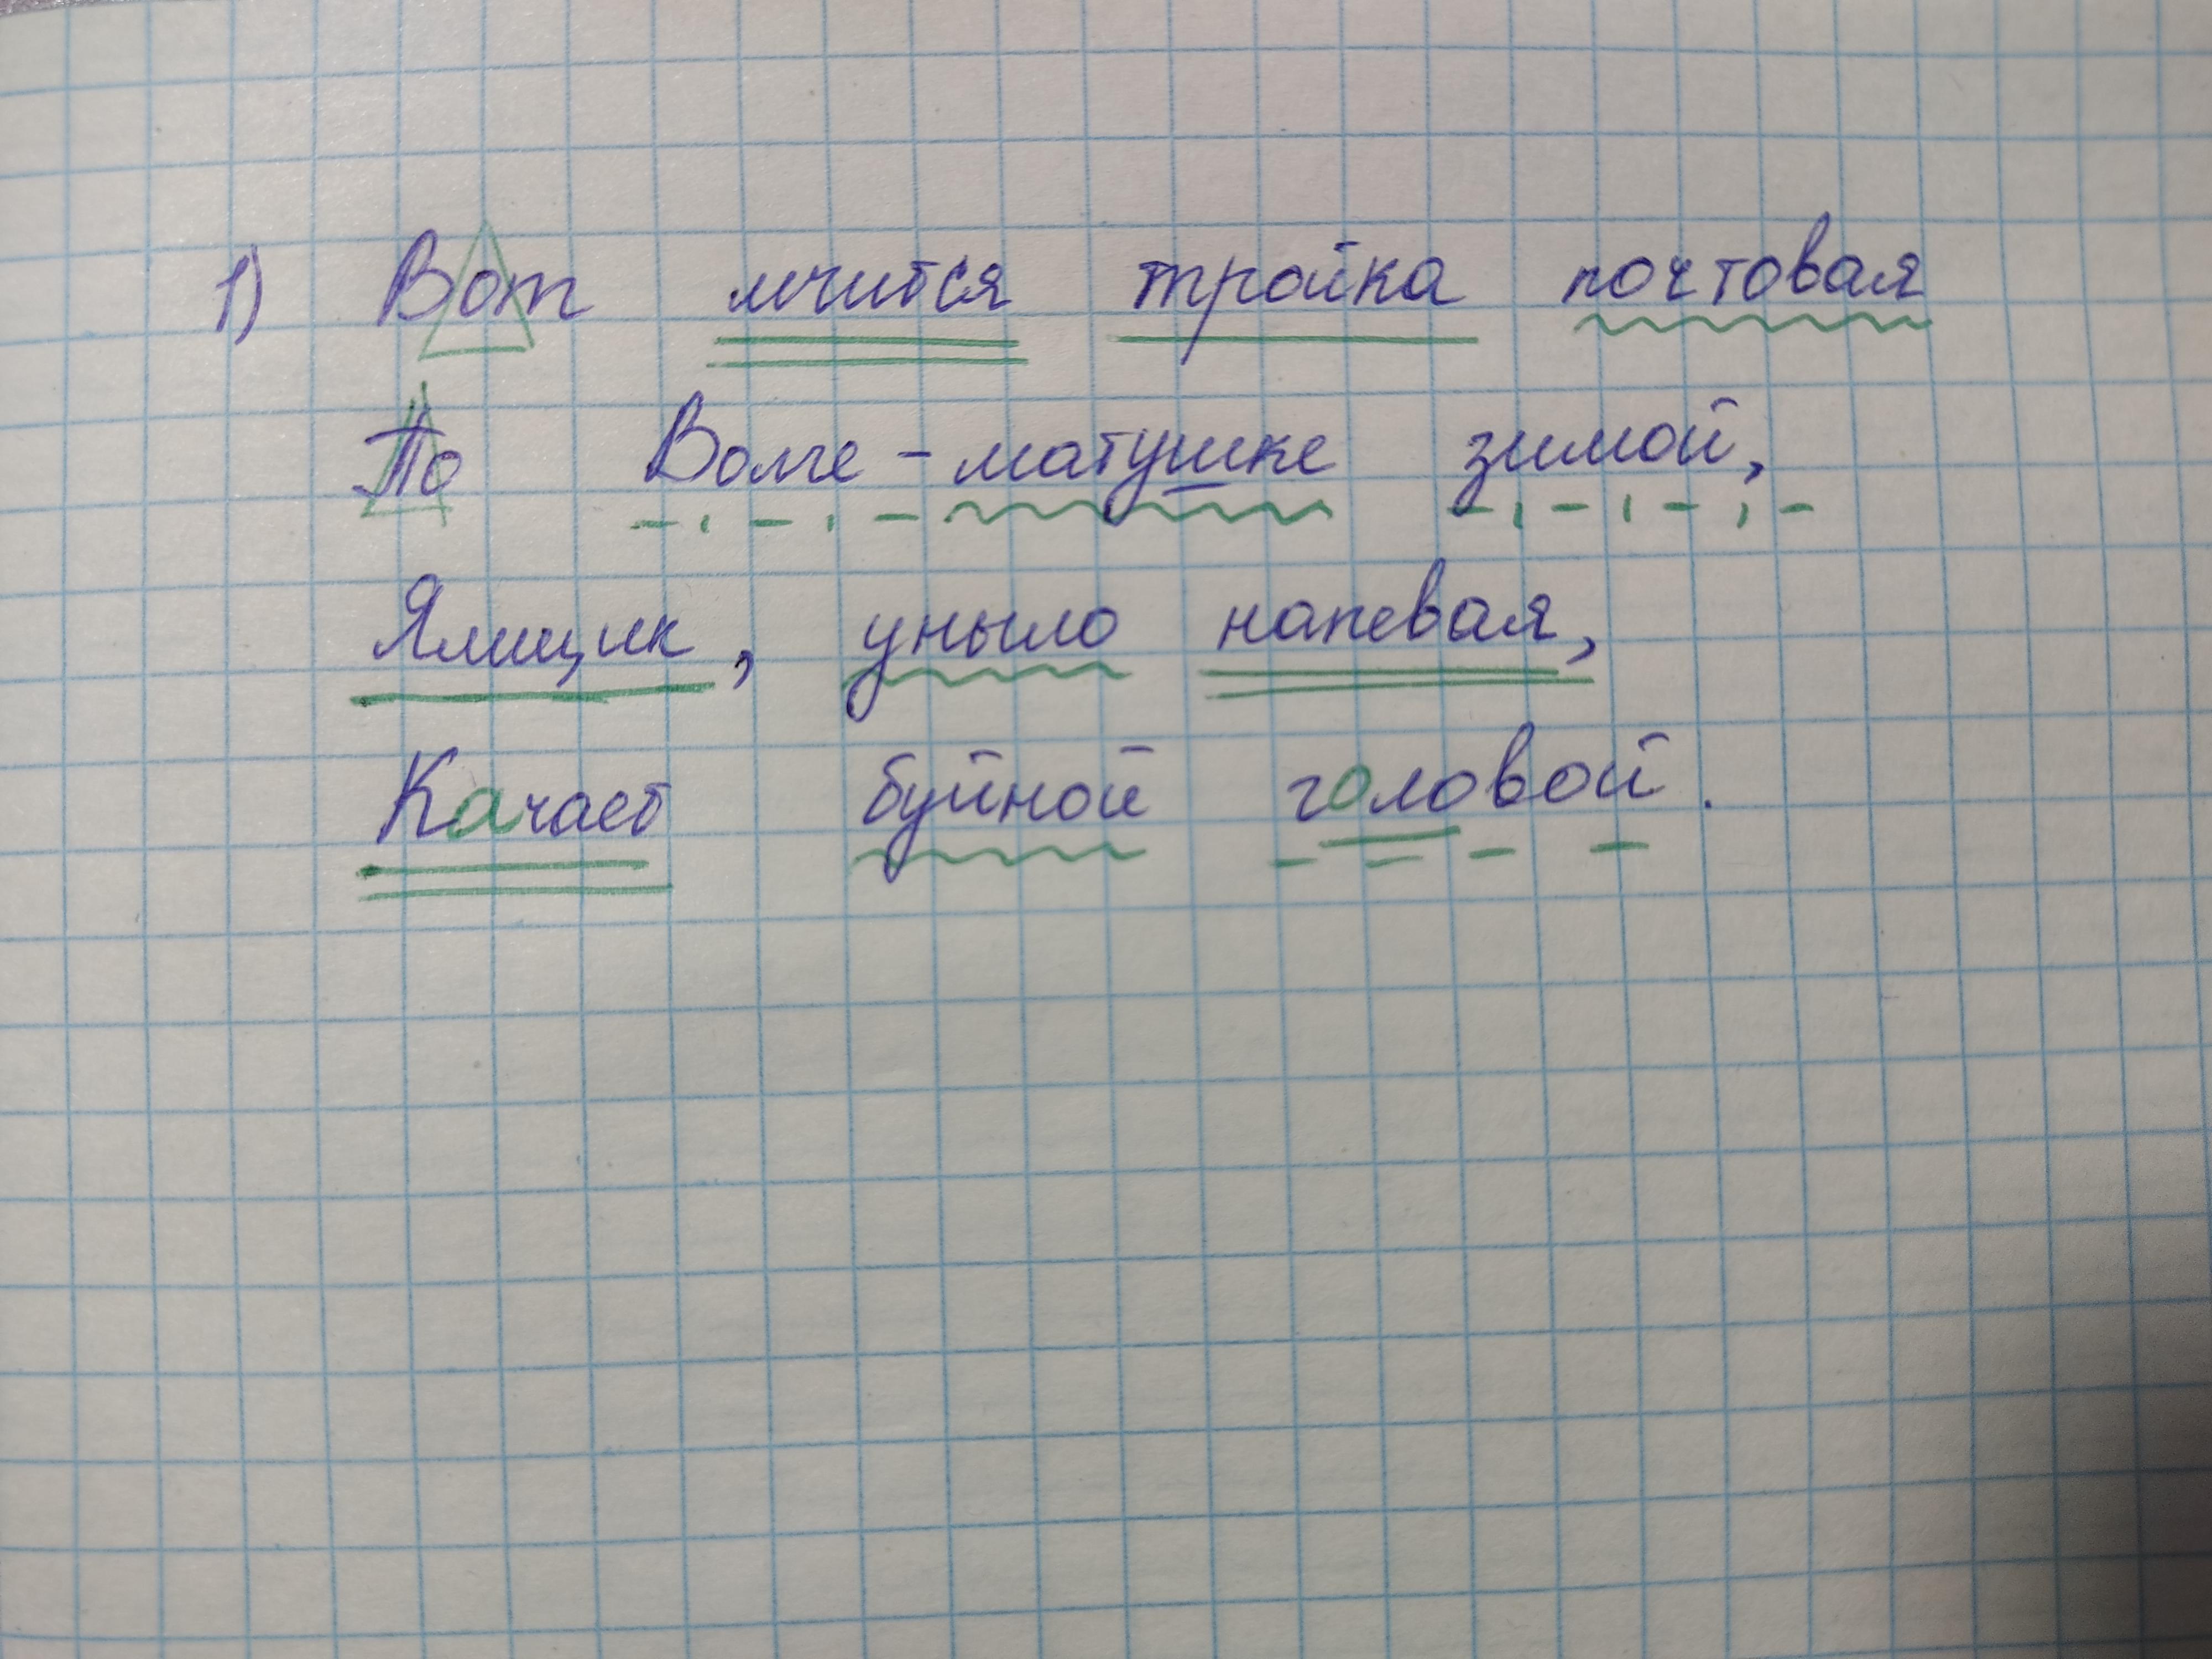 1) Вот мчится тройка почтовая
По Волге-матушке зимой,
Ямщик, уныло напевая,
Качает буйной головой.